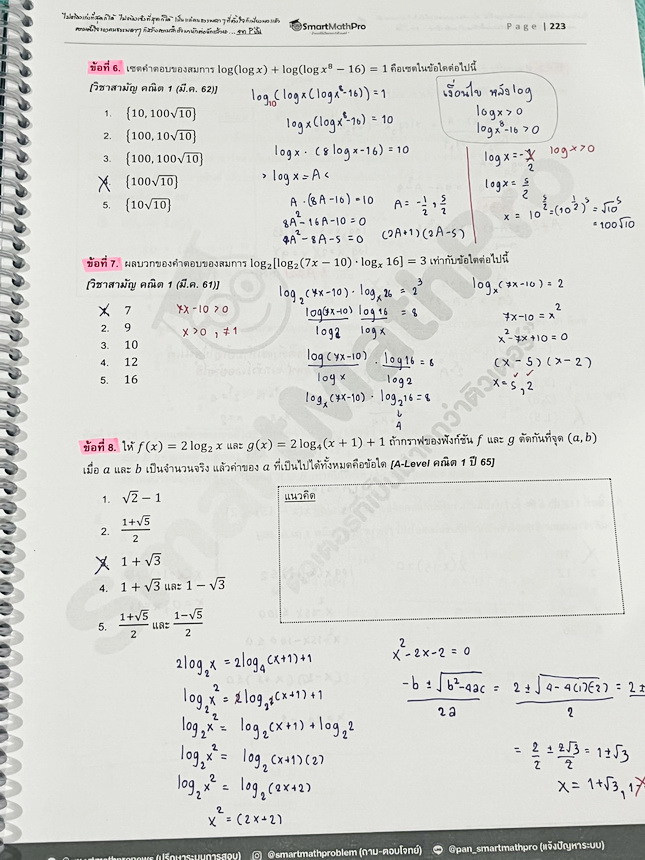 SmartMathPro
Page | 223
ข้อที่ 6. เซตคำตอบของสมการ log(log x) + log(log x⁸ − 16) = 1 คือเซตในข้อใดต่อไปนี้
[วิชาสามัญ คณิต 1 (มี.ค. 62)]
1. {10, 100√10}
2. {100, 10√10}
3. {100, 100√10}
4. {100√10}
5. {10√10}
log₁₀(log x(log x⁸-16)) = 1
log x(log x⁸-16) = 10
log x · (8 log x-16) = 10
> log x = A <
A · (8A-16) = 10
8A²-16A-10 = 0
4A²-8A-5 = 0
A = -1/2, 5/2
(2A+1)(2A-5)
เงื่อนไข หลัง log
log x > 0
log x⁸-16 > 0
log x = -1/2 log x > 0
log x = 5/2
x = 10^(5/2) = (10^(1/2))⁵ = √10⁵
= 100√10
ข้อที่ 7. ผลบวกของคำตอบของสมการ log₂[log₂(7x − 10) · logₓ 16] = 3 เท่ากับข้อใดต่อไปนี้
[วิชาสามัญ คณิต 1 (มี.ค. 61)]
1. 7
2. 9
3. 10
4. 12
5. 16
7x-10 > 0
x > 0, ≠ 1
log₂(7x-10) · logₓ16 = 2³
log(7x-10)/log2 log16/log x = 8
log(7x-10)/log x · log16/log2 = 8
logₓ(7x-10) · log₂16 = 8
4
logₓ(7x-10) = 2
7x-10 = x²
x²-7x+10 = 0
(x-5)(x-2)
x = 5, 2
ข้อที่ 8. ให้ f(x) = 2 log₂ x และ g(x) = 2 log₄(x + 1) + 1 ถ้ากราฟของฟังก์ชัน f และ g ตัดกันที่จุด (a, b)
เมื่อ a และ b เป็นจำนวนจริง แล้วค่าของ a ที่เป็นไปได้ทั้งหมดคือข้อใด [A-Level คณิต 1 ปี 65]
1. √2 − 1
2. (1+√5)/2
3. 1 + √3
4. 1 + √3 และ 1 − √3
5. (1+√5)/2 และ (1−√5)/2
แนวคิด
2log₂x = 2log₄(x+1)+1
log₂x² = 2log₂²(x+1)+1
log₂x² = log₂(x+1)+log₂2
log₂x² = log₂(x+1)(2)
log₂x² = log₂(2x+2)
x² = (2x+2)
x²-2x-2 = 0
(-b ± √(b²-4ac))/2a = (2 ± √(4-4(1)(-2)))/2 = 2 ±
= 2/2 ± 2√3/2 = 1 ± √3
x = 1+√3, 1
(ปรึกษาระบบการสอบ) @smartmathproblem (ถาม-ตอบโจทย์) @pan_smartmathpro (แจ้งปัญหาระบบ)